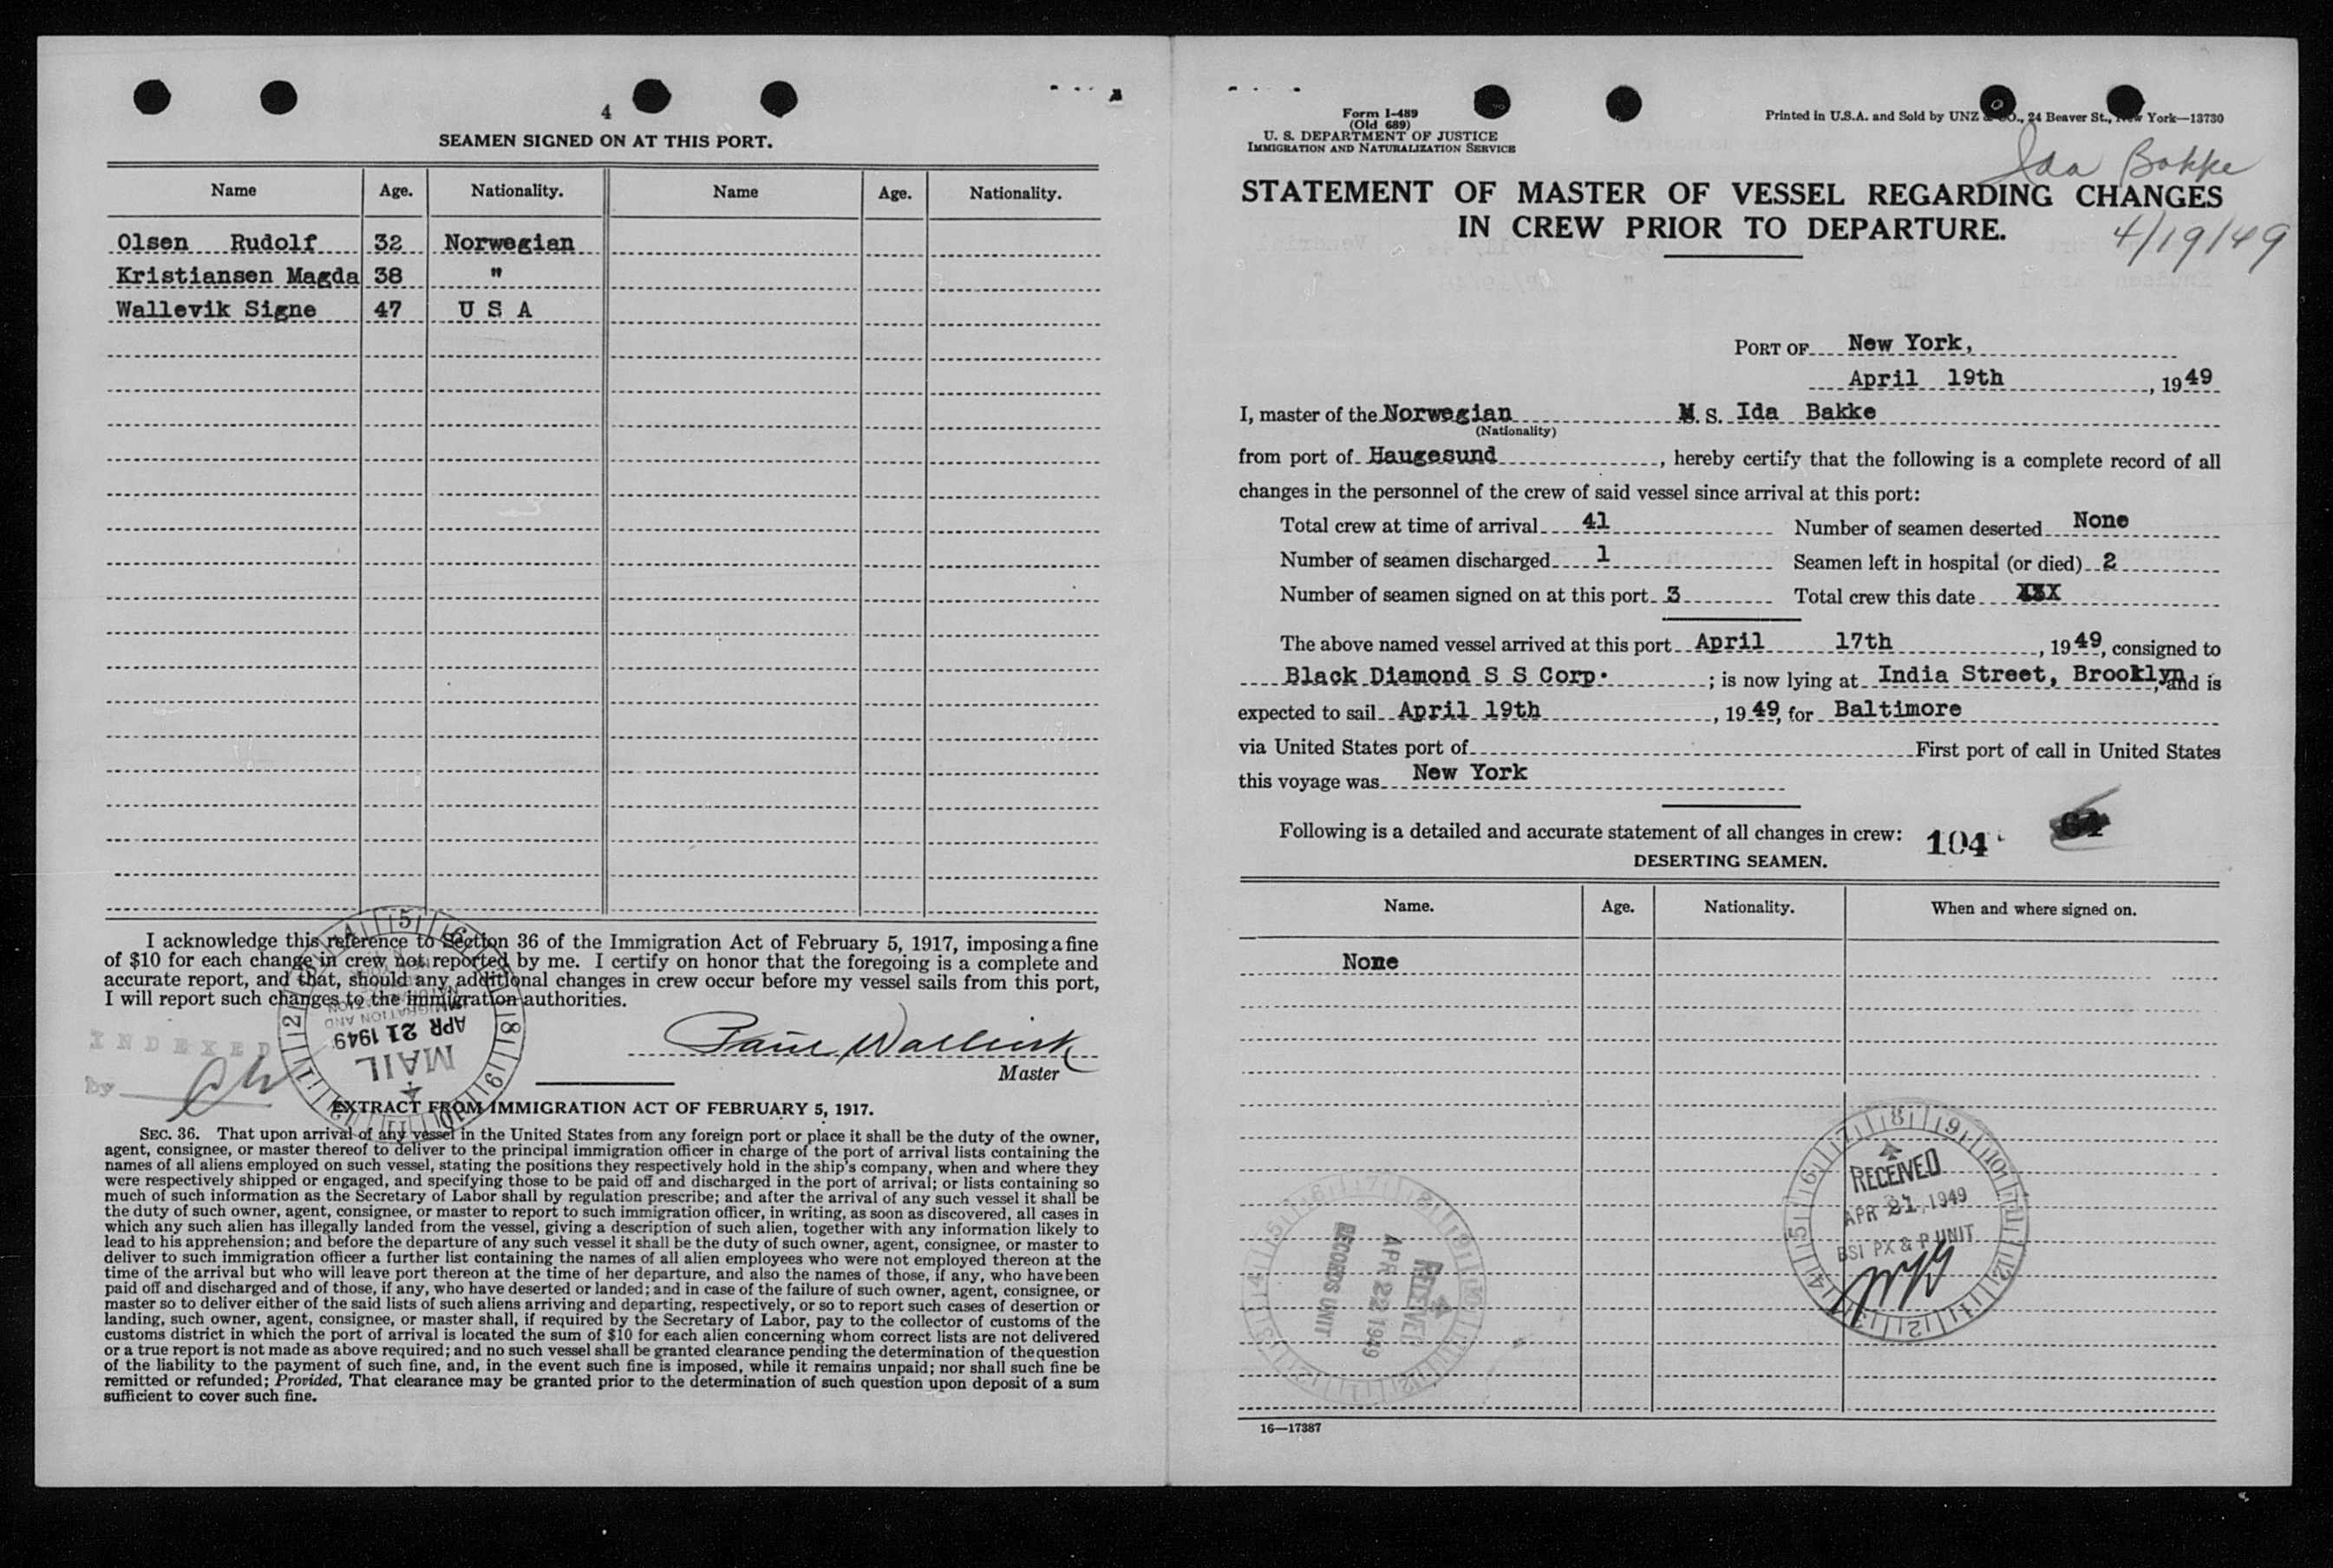 4
SEAMEN SIGNED ON AT THIS PORT.
Name Age. Nationality. Name Age. Nationality.
Olsen Rudolf 32 Norwegian
Kristiansen Magda 38 "
Wallevik Signe 47 U S A
I acknowledge this reference to Section 36 of the Immigration Act of February 5, 1917, imposing a fine
of $10 for each change in crew not reported by me. I certify on honor that the foregoing is a complete and
accurate report, and that, should any additional changes in crew occur before my vessel sails from this port,
I will report such changes to the immigration authorities.
INDEXED
by
IMMIGRATION AND
APR 21 1949
MAIL
Master
EXTRACT FROM IMMIGRATION ACT OF FEBRUARY 5, 1917.
SEC. 36. That upon arrival of any vessel in the United States from any foreign port or place it shall be the duty of the owner,
agent, consignee, or master thereof to deliver to the principal immigration officer in charge of the port of arrival lists containing the
names of all aliens employed on such vessel, stating the positions they respectively hold in the ship's company, when and where they
were respectively shipped or engaged, and specifying those to be paid off and discharged in the port of arrival; or lists containing so
much of such information as the Secretary of Labor shall by regulation prescribe; and after the arrival of any such vessel it shall be
the duty of such owner, agent, consignee, or master to report to such immigration officer, in writing, as soon as discovered, all cases in
which any such alien has illegally landed from the vessel, giving a description of such alien, together with any information likely to
lead to his apprehension; and before the departure of any such vessel it shall be the duty of such owner, agent, consignee, or master to
deliver to such immigration officer a further list containing the names of all alien employees who were not employed thereon at the
time of the arrival but who will leave port thereon at the time of her departure, and also the names of those, if any, who have been
paid off and discharged and of those, if any, who have deserted or landed; and in case of the failure of such owner, agent, consignee, or
master so to deliver either of the said lists of such aliens arriving and departing, respectively, or so to report such cases of desertion or
landing, such owner, agent, consignee, or master shall, if required by the Secretary of Labor, pay to the collector of customs of the
customs district in which the port of arrival is located the sum of $10 for each alien concerning whom correct lists are not delivered
or a true report is not made as above required; and no such vessel shall be granted clearance pending the determination of the question
of the liability to the payment of such fine, and, in the event such fine is imposed, while it remains unpaid; nor shall such fine be
remitted or refunded; Provided, That clearance may be granted prior to the determination of such question upon deposit of a sum
sufficient to cover such fine.
Form I-489
(Old 689)
U. S. DEPARTMENT OF JUSTICE
IMMIGRATION AND NATURALIZATION SERVICE
Printed in U.S.A. and Sold by UNZ & CO., 24 Beaver St., New York—13730
Ida Bakke
STATEMENT OF MASTER OF VESSEL REGARDING CHANGES
IN CREW PRIOR TO DEPARTURE.
4/19/49
PORT OF New York,
April 19th, 1949
I, master of the Norwegian M. S. Ida Bakke
(Nationality)
from port of Haugesund, hereby certify that the following is a complete record of all
changes in the personnel of the crew of said vessel since arrival at this port:
Total crew at time of arrival 41 Number of seamen deserted None
Number of seamen discharged 1 Seamen left in hospital (or died) 2
Number of seamen signed on at this port 3 Total crew this date
The above named vessel arrived at this port April 17th, 1949, consigned to
Black Diamond S S Corp. ; is now lying at India Street, Brooklyn, and is
expected to sail April 19th, 1949, for Baltimore
via United States port of First port of call in United States
this voyage was New York
Following is a detailed and accurate statement of all changes in crew: 104 64
DESERTING SEAMEN.
Name. Age. Nationality. When and where signed on.
None
RECEIVED
APR 21 1949
BSI PX & P UNIT
RECEIVED
APR 22 1949
RECORDS UNIT
16—17387